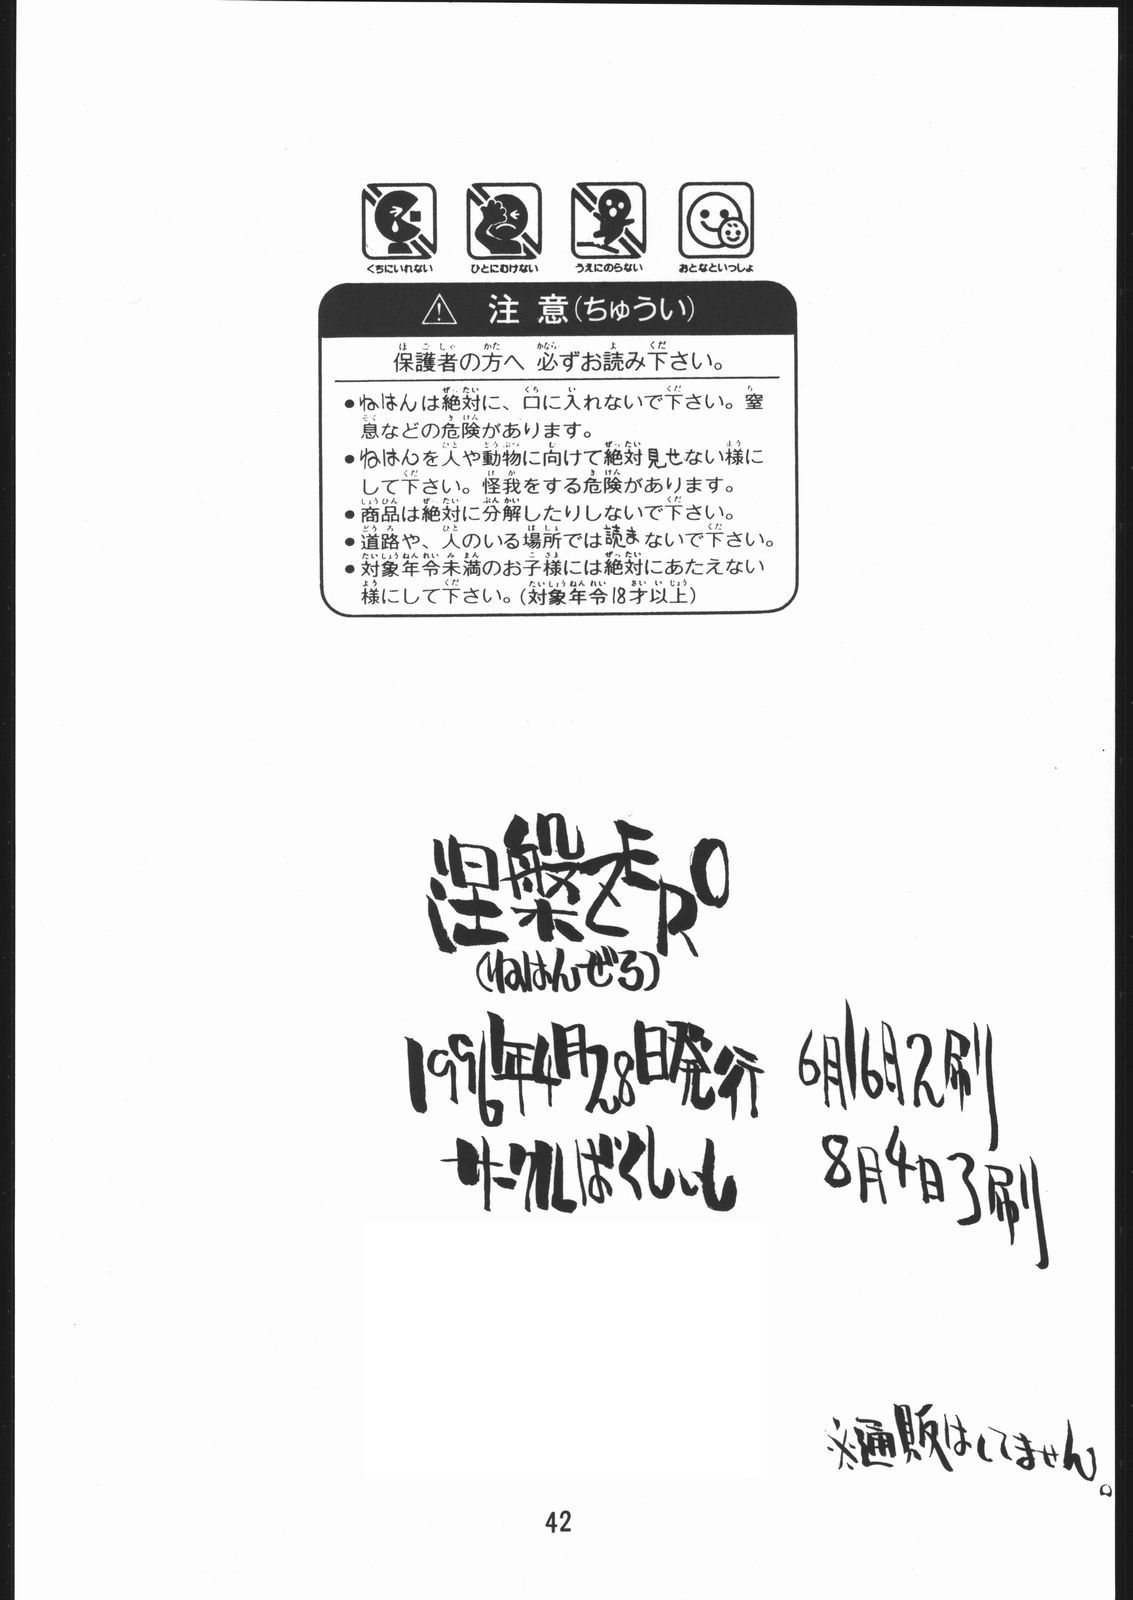 くちにいれない
ひとにむけない
うえにのらない
おとなといっしょ
注意(ちゅうい)
保護者の方へ 必ずお読み下さい。
●ねはんは絶対に、口に入れないで下さい。窒
息などの危険があります。
●ねはんを人や動物に向けて絶対見せない様に
して下さい。怪我をする危険があります。
●商品は絶対に分解したりしないで下さい。
●道路や、人のいる場所では読まないで下さい。
●対象年令未満のお子様には絶対にあたえない
様にして下さい。(対象年令18才以上)
涅槃ZERO
(ねはんぜろ)
1996年4月28日発行
6月16日2刷
サークルばくしぃし
8月4日3刷
※通販はしてません。
42